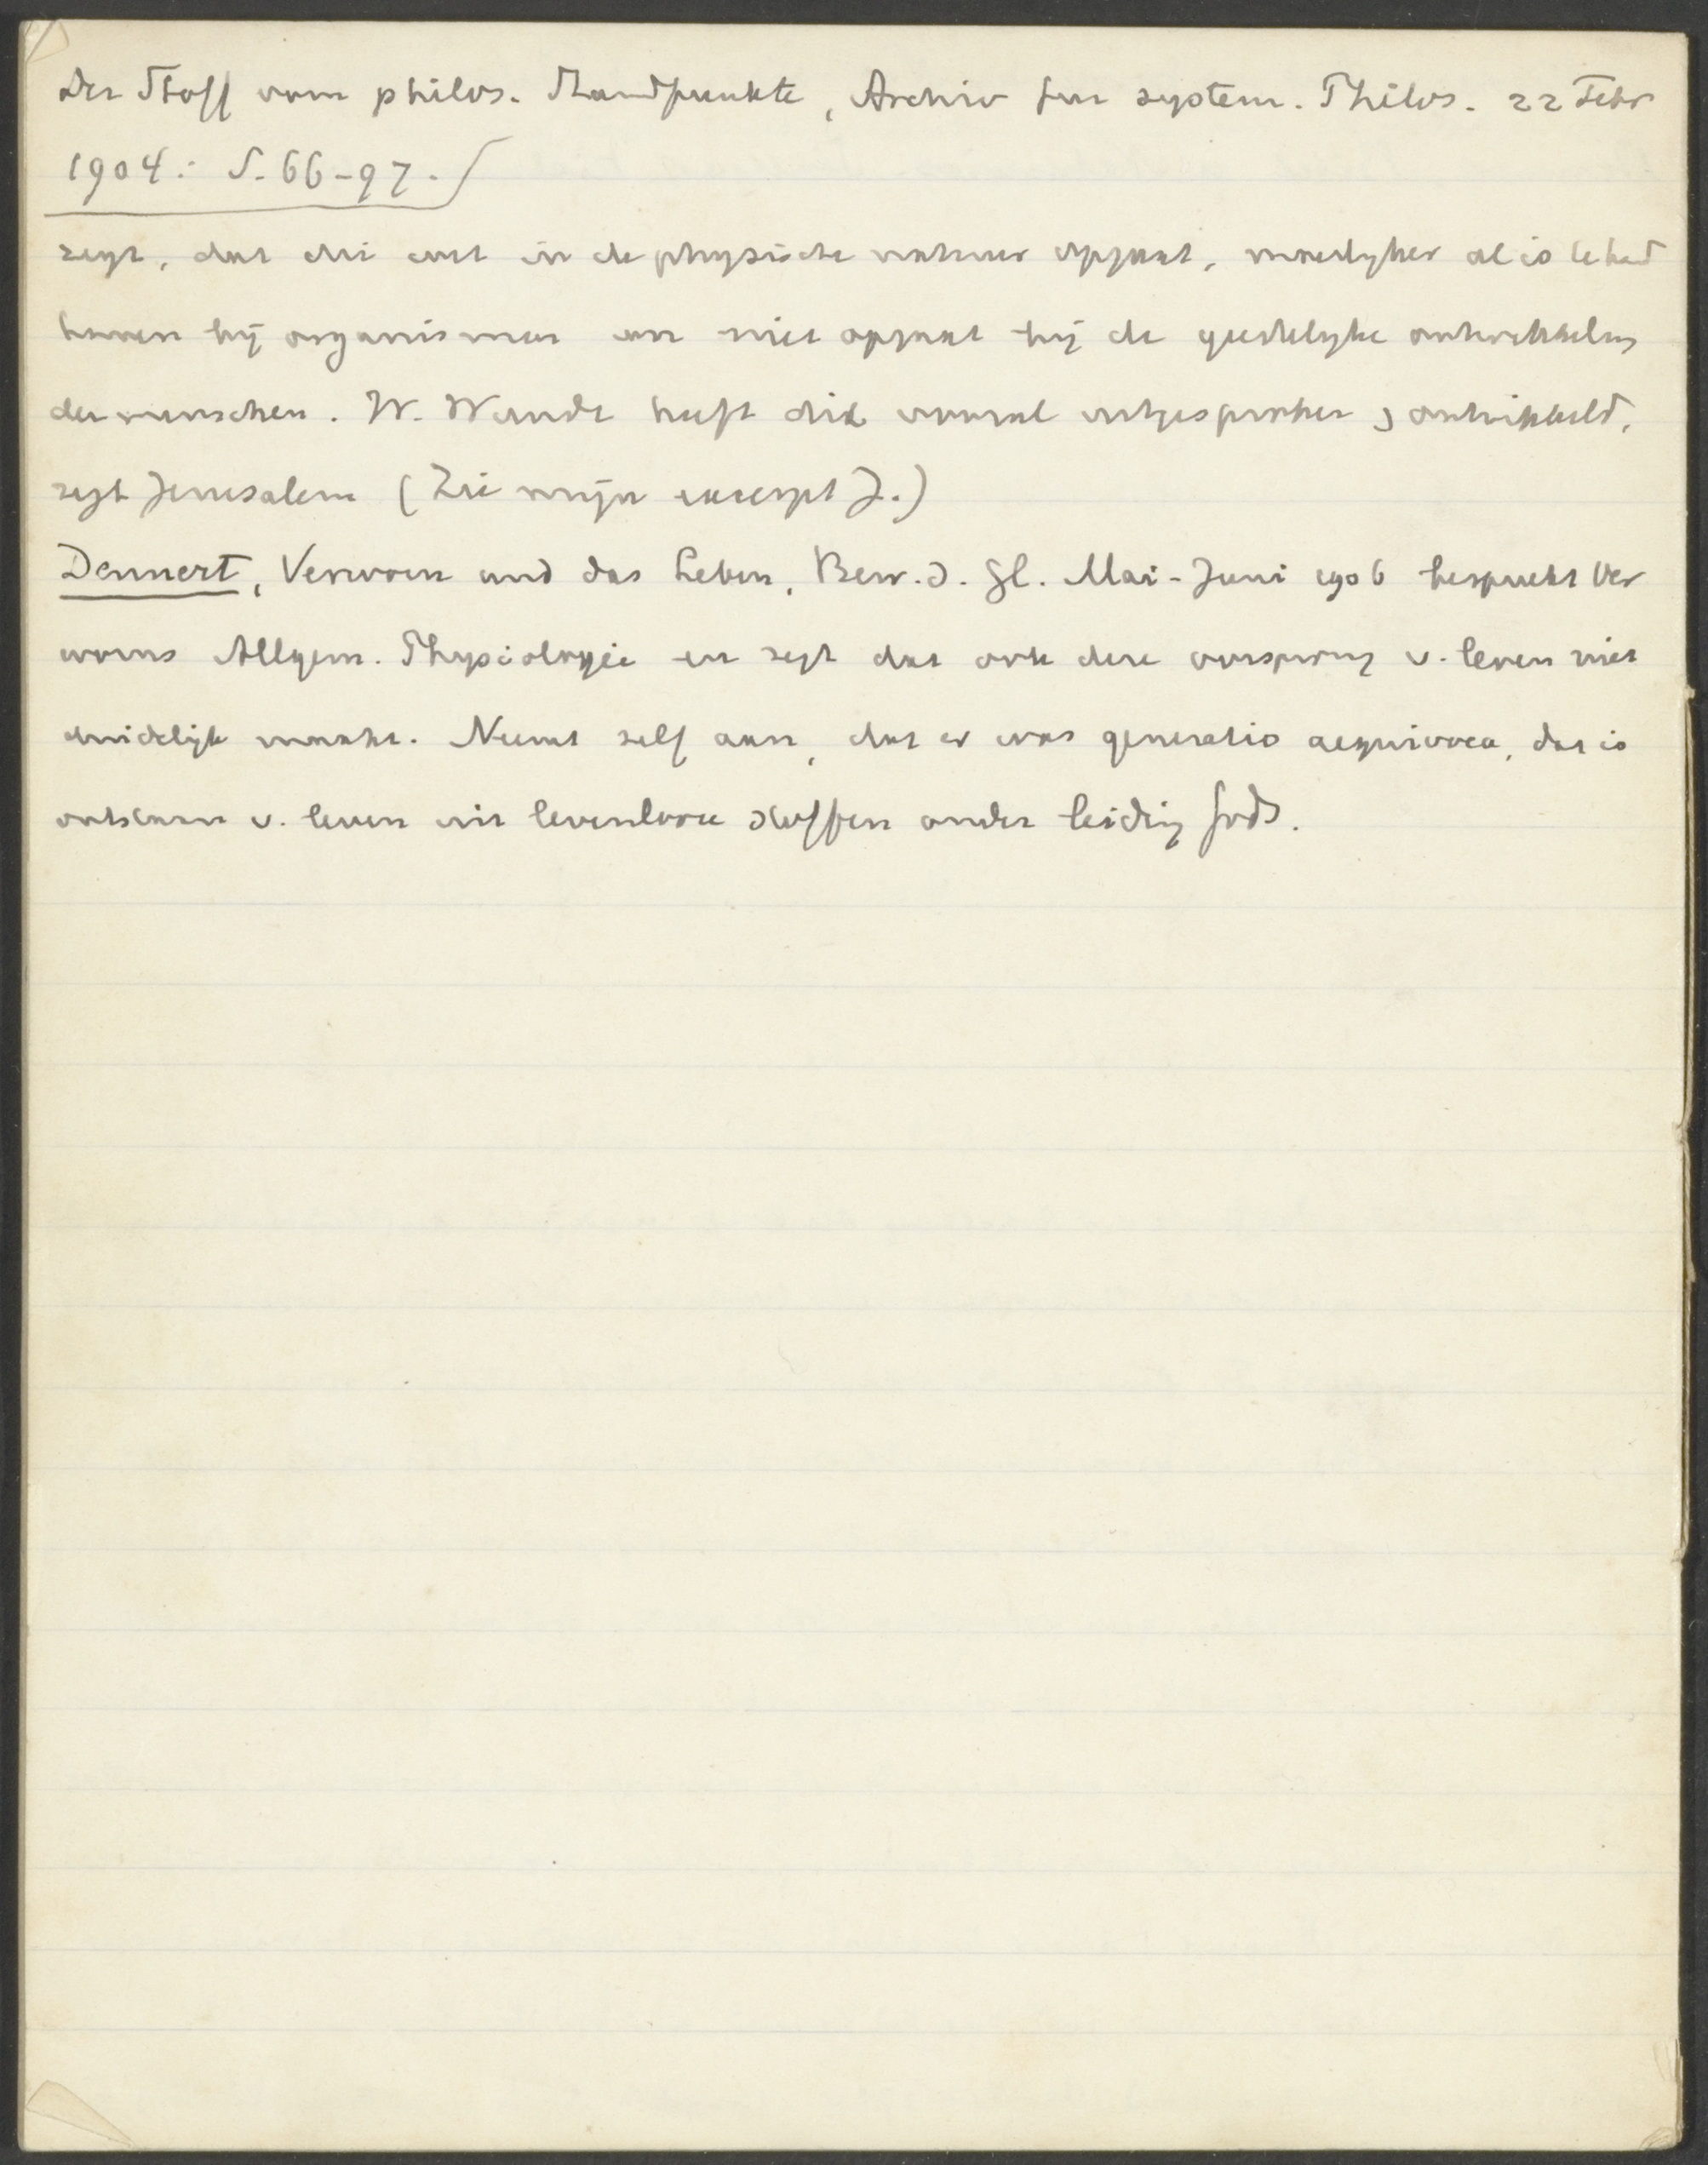 der Stoff vom philos. Standpunkte, Archiv fur system. Philos. 22 Febr
1904: S. 66-97.
zegt, dat die wet in de physische natuur opgaat, moeilyker al is te hand
haven bij organismen en niet opgaat bij de geestelyke ontwikkeling
der menschen. W. Wundt heeft dit vooral uitgesproken & ontwikkeld,
zegt Jerusalem (Zie mijn excerpt J.)
Dennert, Verworn und das Leben, Bew. d. Gl. Mai-Juni 1906 bespreekt Ver
worns Allgem. Physiologie en zegt dat ook deze oorsprong v. leven niet
duidelijk maakt. Neemt zelf aan, dat er was generatio aequivoca, dat is
ontstaan v. leven uit levenlooze stoffen onder leiding Gods.